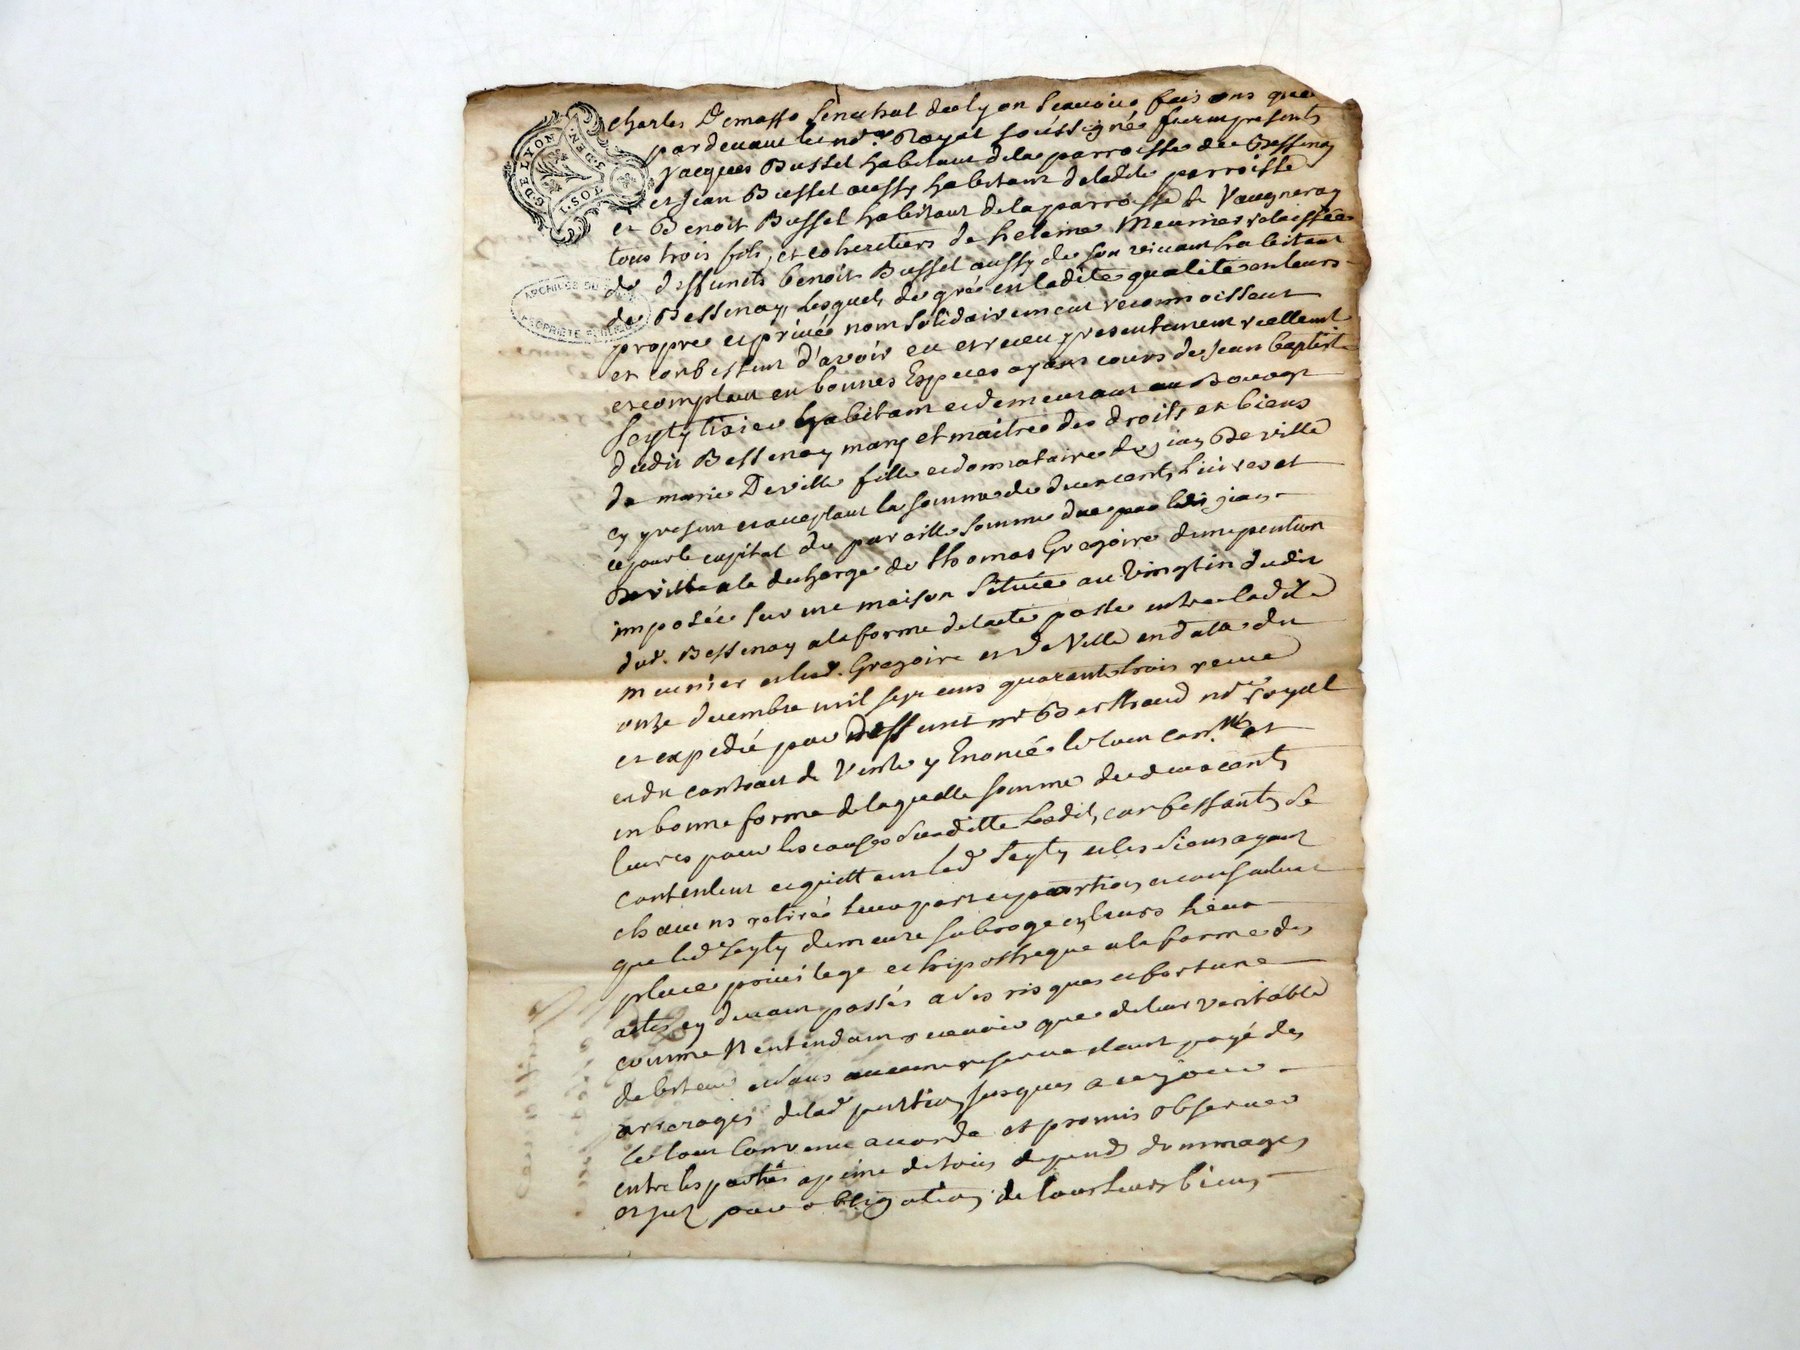 G. DE LYON
3. S. DEN.
1. SOL.
ARCHIVES DU
PROPRIETE PUBLIQUE
Charles Demasso Senechal de Lyon Scavoir faisons que
par devant le no.re Royal soussigné furent presents
Jacques Bussel habitant de la parroisse de Bessenay
et Jean Bussel aussy habitant de ladite parroisse
et Benoit Bussel habitant de la parroisse de Vaugneray
tous trois fils, et coheretiers de helaine Meunier relaissée
de deffunits benoit Bussel aussy de son vivant habitant
de Bessenay, lesquels de gré en ladite qualité en leurs
propre et privée nom solidairement reconnoissent
et confessent d'avoir eu et receu presentement reellement
et comptant en bonnes Especes ayant cours de Jean baptiste
habitant et demeurant au Bourg
dudit Bessenay mary et maitre des droits et biens
de marie Deville fille et donnataire de jean Deville
cy present et acceptant la somme de deux cents livres et
ce pour le capital de pareille somme due par ledit jean
Deville a la decharge de thomas Gregoire d'une pention
imposée sur une maison scituée au Vingtin dudit
dud. Bessenay a la forme de l'acte passé entre ladite
meunier et led. Gregoire et De Ville en date du
onze decembre mil sept cens quarante trois receu
et expedié par deffunt mr Berthaud no.re royal
et du contract de Vente y Enoncé le tout con.lé et
en bonne forme de laquelle somme de deux cents
livres pour les causes susditte lesdits confessants se
contentent et quittent led Seyty et les siens ayant
chacuns retirée leur part et portion et consentent
que led Seyty demeure subrogé en leurs lieux
place privilege et hipothegue a la forme des
actes cy devant passés a ses risques et fortune
comme N'entendant recevoir que de leur veritable
debiteur et sans aucune reserve etant payé des
arrerages de lad pention jusques a ce jour
le tout convenu accordé et promis observer
entre les parties a peine de tous depends dommages
et par obligation de tous leurs biens